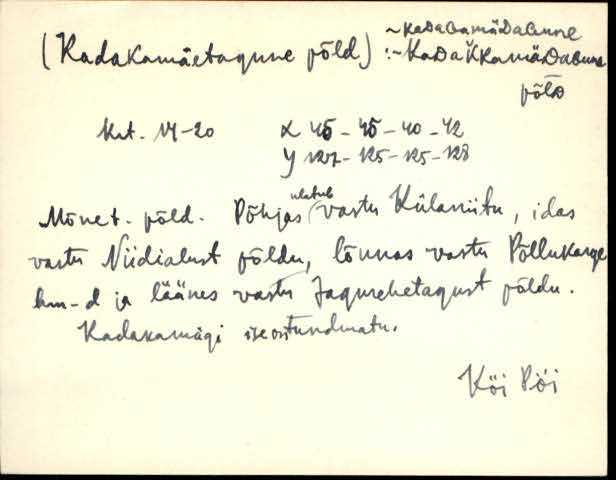 (Kadakamäetagune põld) :~ KaDaGamäDaGune
~ KaDaKKamäDaGune
põlD
krt. 14-20 X 45 - 45 - 40 - 42
Y 127 - 125 - 125 - 128
Mõnet. põld. Põhjas ulatub vastu Külaniitu, idas
vastu Niidialust põldu, lõunas vastu Põllukarge
hm-d ja läänes vastu Jagurehetagust põldu.
Kadakamägi ise on tundmatu.
Köi Pöi